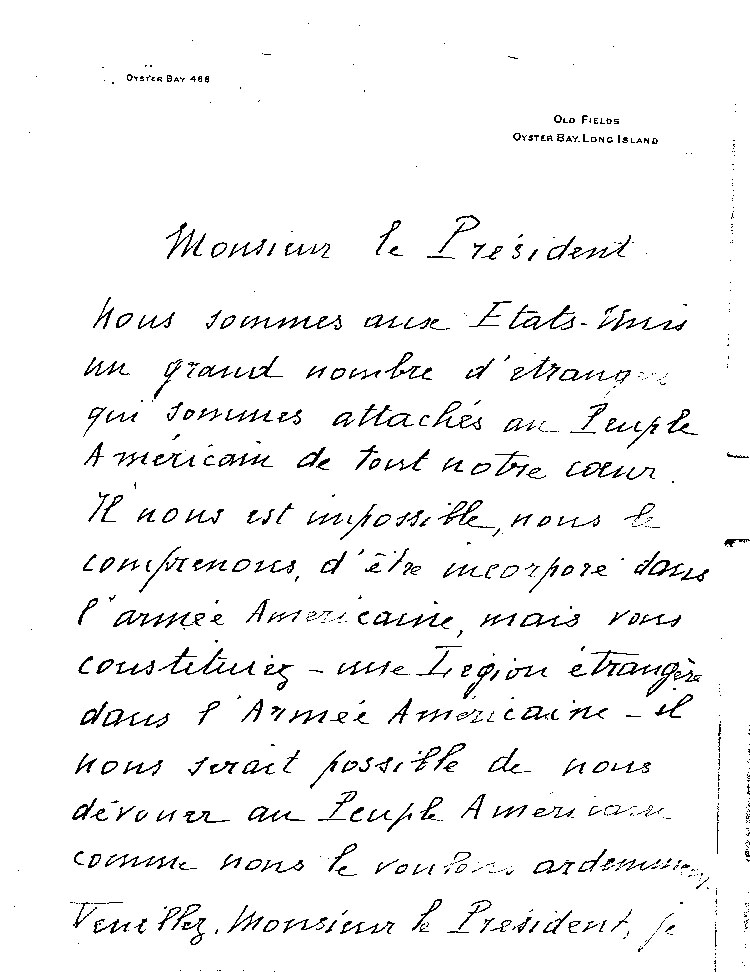 OYSTER BAY 468
OLD FIELDS
OYSTER BAY, LONG ISLAND
Monsieur le Président
Nous sommes aux Etats-Unis
un grand nombre d'étrangers
qui sommes attachés au Peuple
Américain de tout notre cœur.
Il nous est impossible, nous le
comprenons, d'être incorporé dans
l'armée Américaine, mais vous
constitueriez - une Légion étrangère
dans l'Armée Américaine - il
nous serait possible de nous
dévouer au Peuple Américain
comme nous le voulons ardemment.
Veuillez, Monsieur le Président, je